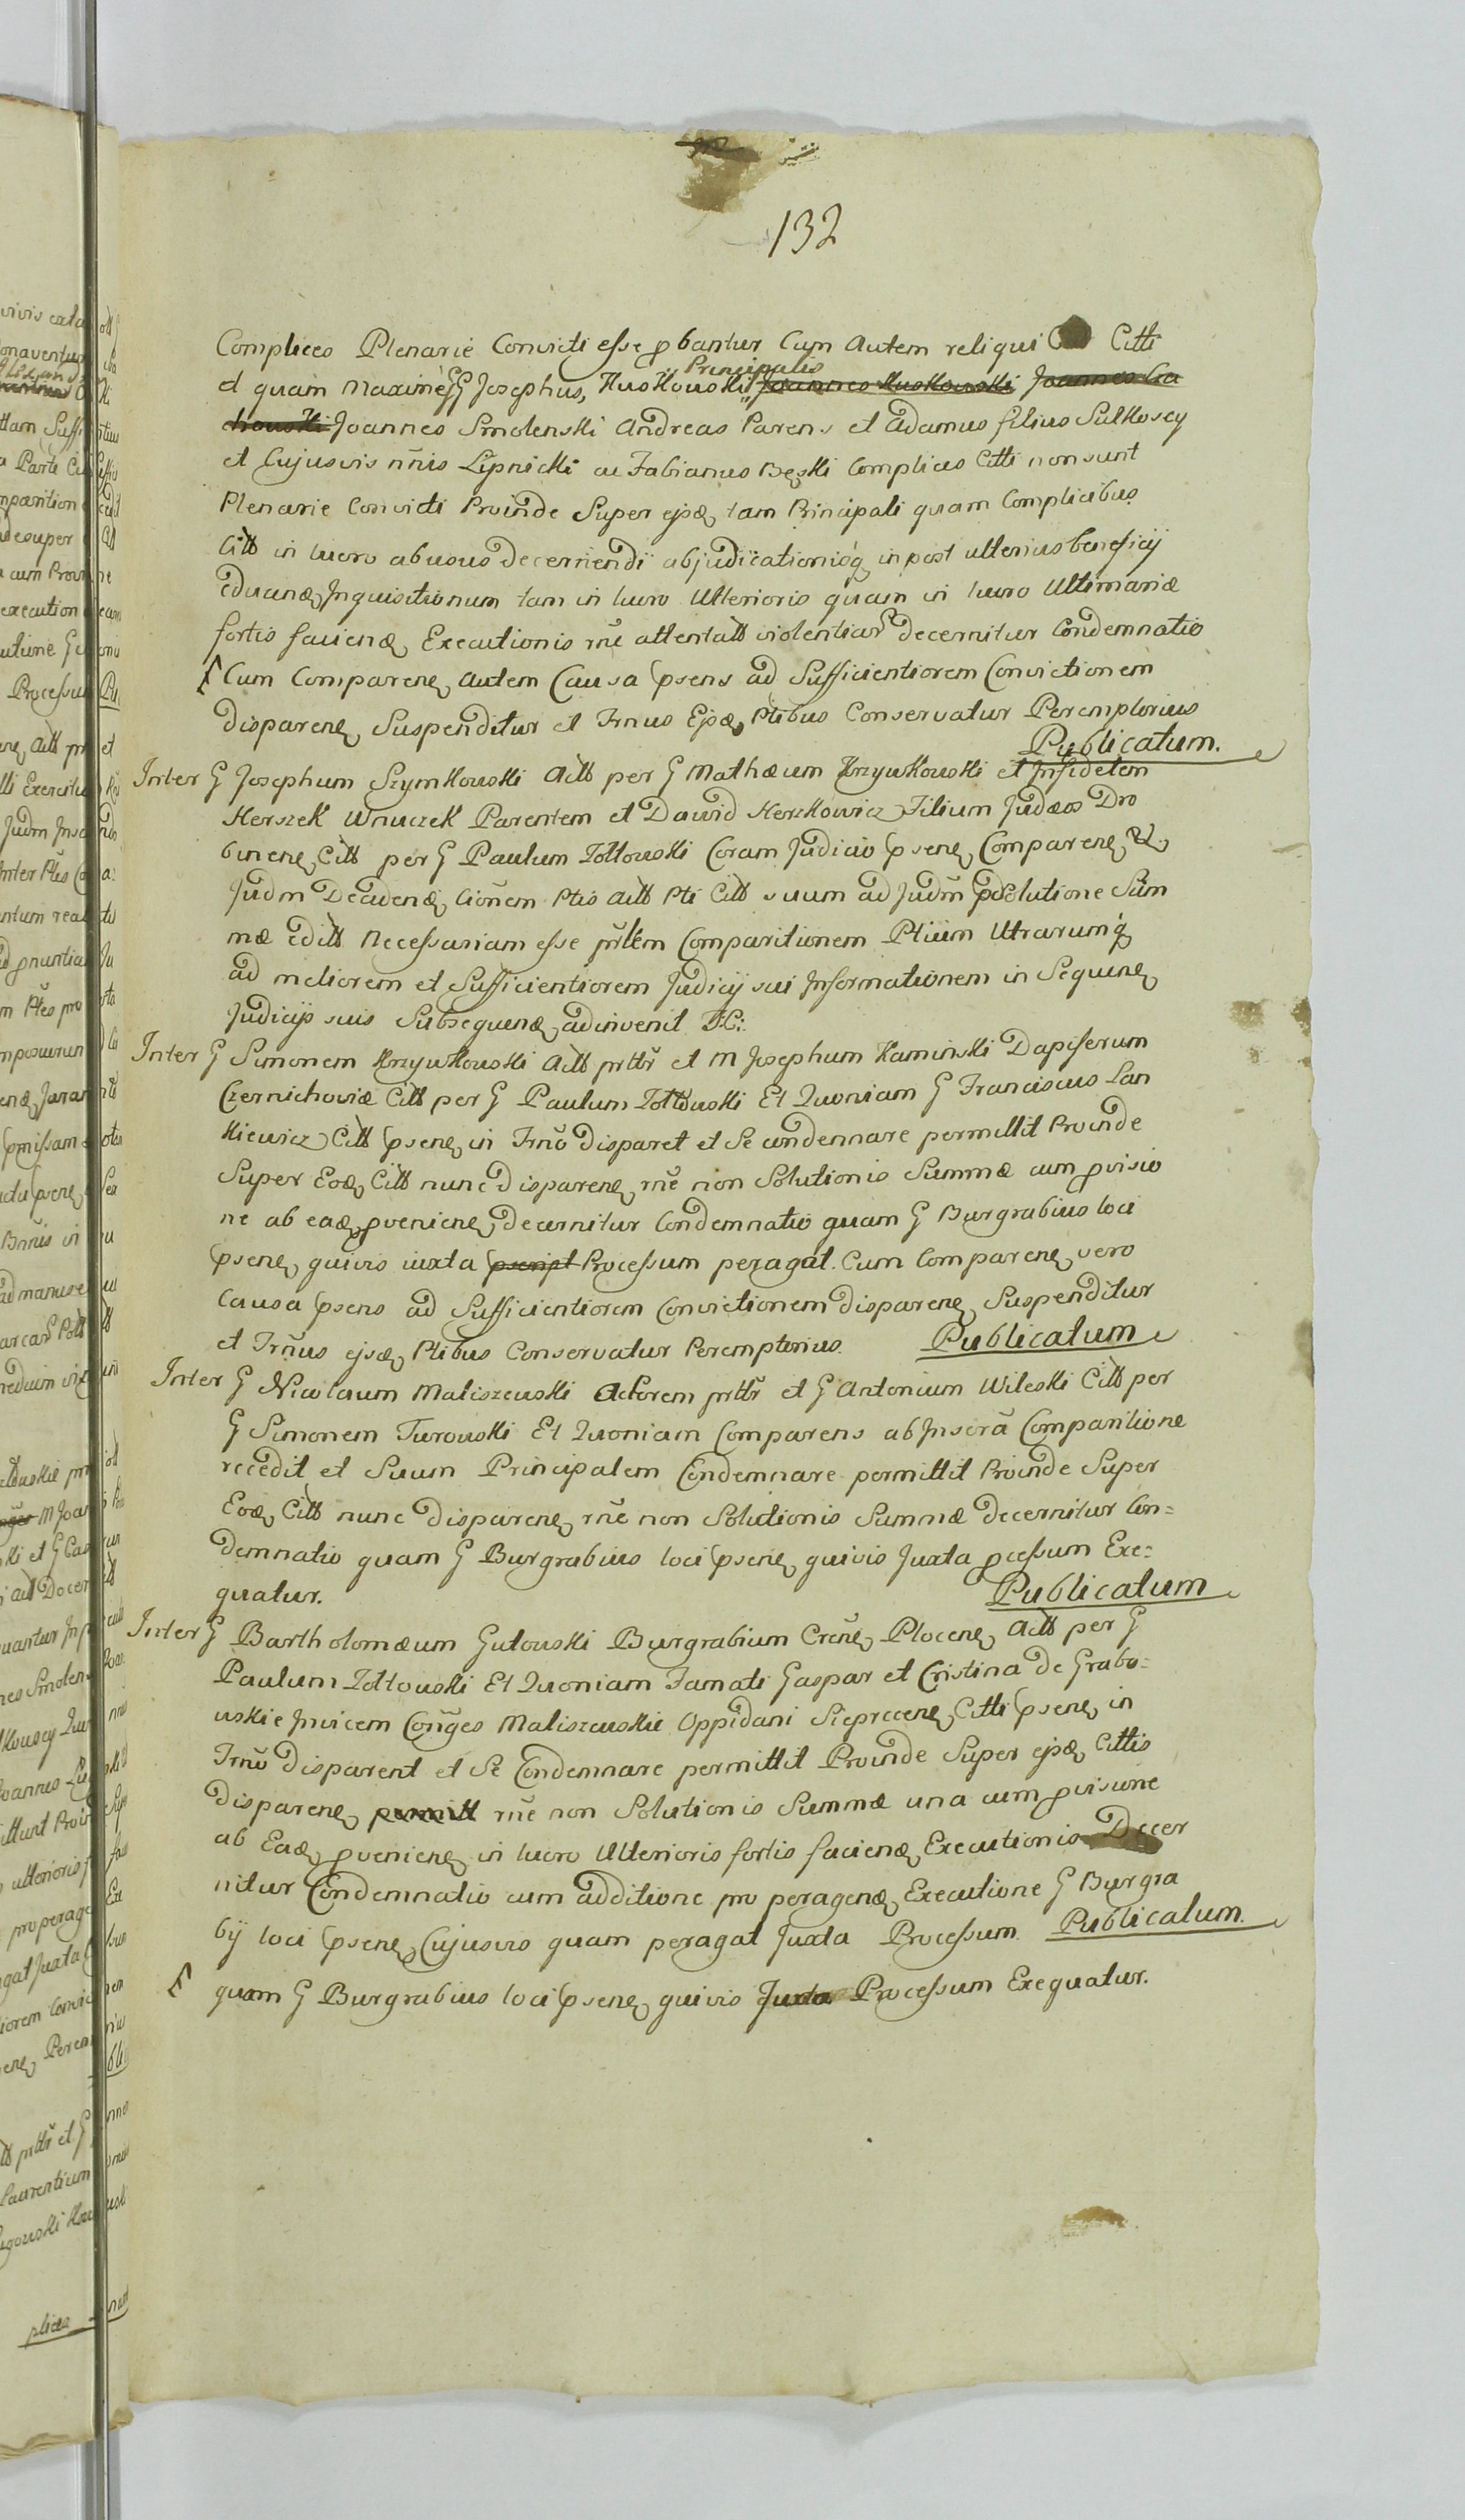 132
Complices Plenarie Convicti esse pbantur Cum Autem reliqui Citti
et quam Maxime GG Josephus, Kuskowski "Principalis" Joannes Kuskowski Joannes
chowski Joannes Smolenski Andreas Parens et Adamus filius Sulkoscy
et Cujusvis nñis Lipnicki ac Fabianus Bęski Complices Citti non sunt
Plenarie Convicti Proinde Super ejsdę tam Principali quam Complicibus
Citt in lucro abusus decernendi abjudicationisq in post ulterius beneficij
educendę Inquisitionum tam in lucro Ulterioris quam in lucro Ultimariæ
fortis faciendę Executionis rñe attentatt violentiar decernitur Condemnatio
Cum Comparenę autem Causa psens ad Sufficientiorem Convictionem
disparenę Suspenditur et Trnus Ejsdę Ptibus Conservatur Peremptorius
Publicatum.
Inter G Josephum Szymkowski Actt per G Mathæum Krzywkowski et Infidelem
Herszek Wnuczek Parentem et Dawid Herszkowicz Filium Judæos Dro
binenę Citt per G Paulum Zołtowski Coram Judicio psenę Comparenę &,
Judm Decidendę Cionem Ptis Actt Pti Citt suum ad Judm Solutione Sum
mæ editt Necessariam esse prlem Comparitionem Ptium Utrarumq
ad meliorem et Sufficientiorem Judicij sui Informationem in Sequenę
Judicijs suis Subsequendę adinvenit D:C:
Inter G Simonem Krzywkowski Actt prttr et M Josephum Kaminski Dapiferum
Czernichoviæ Citt per G Paulum Zołtowski Et Quoniam G Franciscus Lan
kiewicz Citt psenę in Trno disparet et Se condemnare permittit Proinde
Super Eodę Citt nunc disparenę rñe non Solutionis Summæ cum pvisio
ne ab eadę pvenienę, decernitur Condemnatio quam G Burgrabius loci
psenę quivis iuxta pscript Processum peragat. Cum Comparenę vero
Causa psens ad Sufficientiorem Convictionem disparenę Suspenditur
et Trñus ejsdę Ptibus Conservatur Peremptorius. Publicatum
Inter G Nicolaum Maliszewski Actorem prttr et G Antonium Wileski Citt per
G Simonem Turowski Et Quoniam Comparens ab Inserã Comparitione
recedit et Suum Principalem Condemnare permittit Proinde Super
Eodę Citt nunc disparenę rñe non Solutionis Summæ decernitur Con=
demnatio quam G Burgrabius loci psenę quivis Juxta pcessum Exe=
quatur. Publicatum
Inter G Bartholomæum Gutowski Burgrabium Crenę Plocenę Actt per G
Paulum Zołtowski Et Quoniam Famati Gaspar et Cristina de Grabo=
wskie Invicem Conges Maliszewskie Oppidani Sieprcenę Citti psenę in
Trno disparent et Se Condemnare permittit Proinde Super ejsdę Cittis
disparenę permitt rñe non Solutionis Summæ una cum pvisione
ab Eadę pvenienę in lucro Ulterioris fortis faciendę Executionis Decer
nitur Condemnatio cum additione pro peragendę Executione G Burgra
bij loci psenę Cujusvis quam peragat Juxta Processum. Publicatum.
quam G Burgrabius loci psenę quivis Juxta Processum Exequatur.